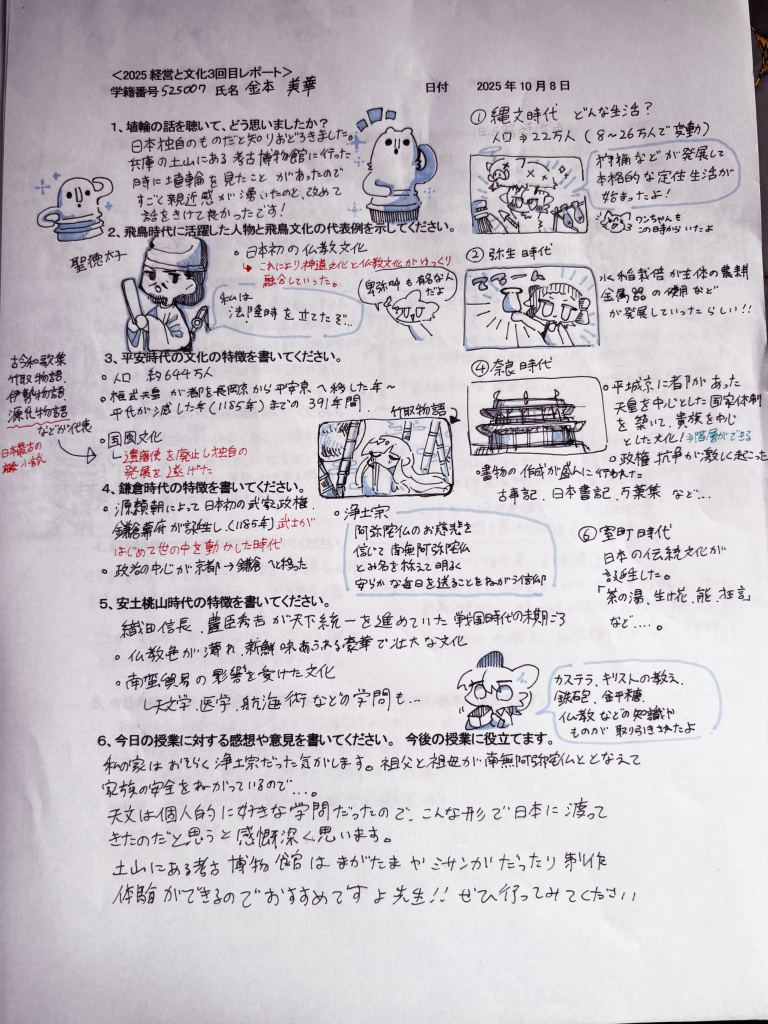 <2025 経営と文化3回目レポート>
学籍番号 525007 氏名 金本 美華
日付 2025年10月8日
1、埴輪の話を聴いて、どう思いましたか？
日本独自のものだと知りおどろきました。
兵庫の土山にある考古博物館に行った
時に埴輪を見たことがあったので
すごく親近感が湧いたのと、改めて
話をきけて良かったです！
2、飛鳥時代に活躍した人物と飛鳥文化の代表例を示してください。
聖徳太子
日本初の仏教文化
これにより神道文化と仏教文化がゆっくり
融合していった。
私は
法隆時を立てたぞ…
卑弥呼も有名な人
だよ
3、平安時代の文化の特徴を書いてください。
・人口 約644万人
・桓武天皇が都を長岡京から平安京へ移した年〜
平氏が滅した年(1185年)までの 391年間.
・国風文化
遣唐使を廃止し独自の
発展を遂げた
古今和歌集
竹取物語.
伊勢物語
源氏物語
などが代表
日本最古の
小説
竹取物語
4、鎌倉時代の特徴を書いてください。
・源頼朝によって日本初の武家政権.
鎌倉幕府が誕生し.(1185年) 武士が
はじめて世の中を動かした時代
・政治の中心が京都→鎌倉へと移った
・浄土宗
阿弥陀仏のお慈悲を
信じて南無阿弥陀仏
とみ名を称えて明るく
安らかな毎日を送ることをねがう信仰
5、安土桃山時代の特徴を書いてください。
織田信長.豊臣秀吉が天下統一を進めていた戦国時代の末期ごろ
・仏教色が薄れ、新鮮味あふれる豪華で壮大な文化
・南蛮貿易の影響を受けた文化
天文学.医学.航海術などの学問も…
カステラ、キリストの教え、
鉄砲、金平糖、
仏教などの知識や
ものが取り引きされたよ
6、今日の授業に対する感想や意見を書いてください。 今後の授業に役立てます。
私の家はおそらく浄土宗だった気がします。祖父と祖母が南無阿弥陀仏ととなえて
家族の安全をねがっているので…。
天文は個人的に好きな学問だったので、こんな形で日本に渡って
きたのだと思うと感慨深く思います。
土山にある考古博物館はまがたまやミサンガだったり制作
体験ができるのでおすすめですよ先生!! ぜひ行ってみてください
① 縄文時代 どんな生活？
人口⇒22万人 (8〜26万人で変動)
狩猟などが発展して
本格的な定住生活が
始まったよ！
ワンちゃんも
この時からいたよ
② 弥生時代
水稲栽培が主体の農耕
金属器の使用など
が発展していったらしい!!
④ 奈良時代
・平城京に都があった
天皇を中心とした国家体制
を築いて、貴族を中心
とした文化！⇒階層ができる
・政権抗争が激しく起こった
・書物の作成が盛んに行われた
古事記、日本書記、万葉集 など…
⑥ 室町時代
日本の伝統文化が
誕生した。
「茶の湯、生け花、能、狂言」
など….。